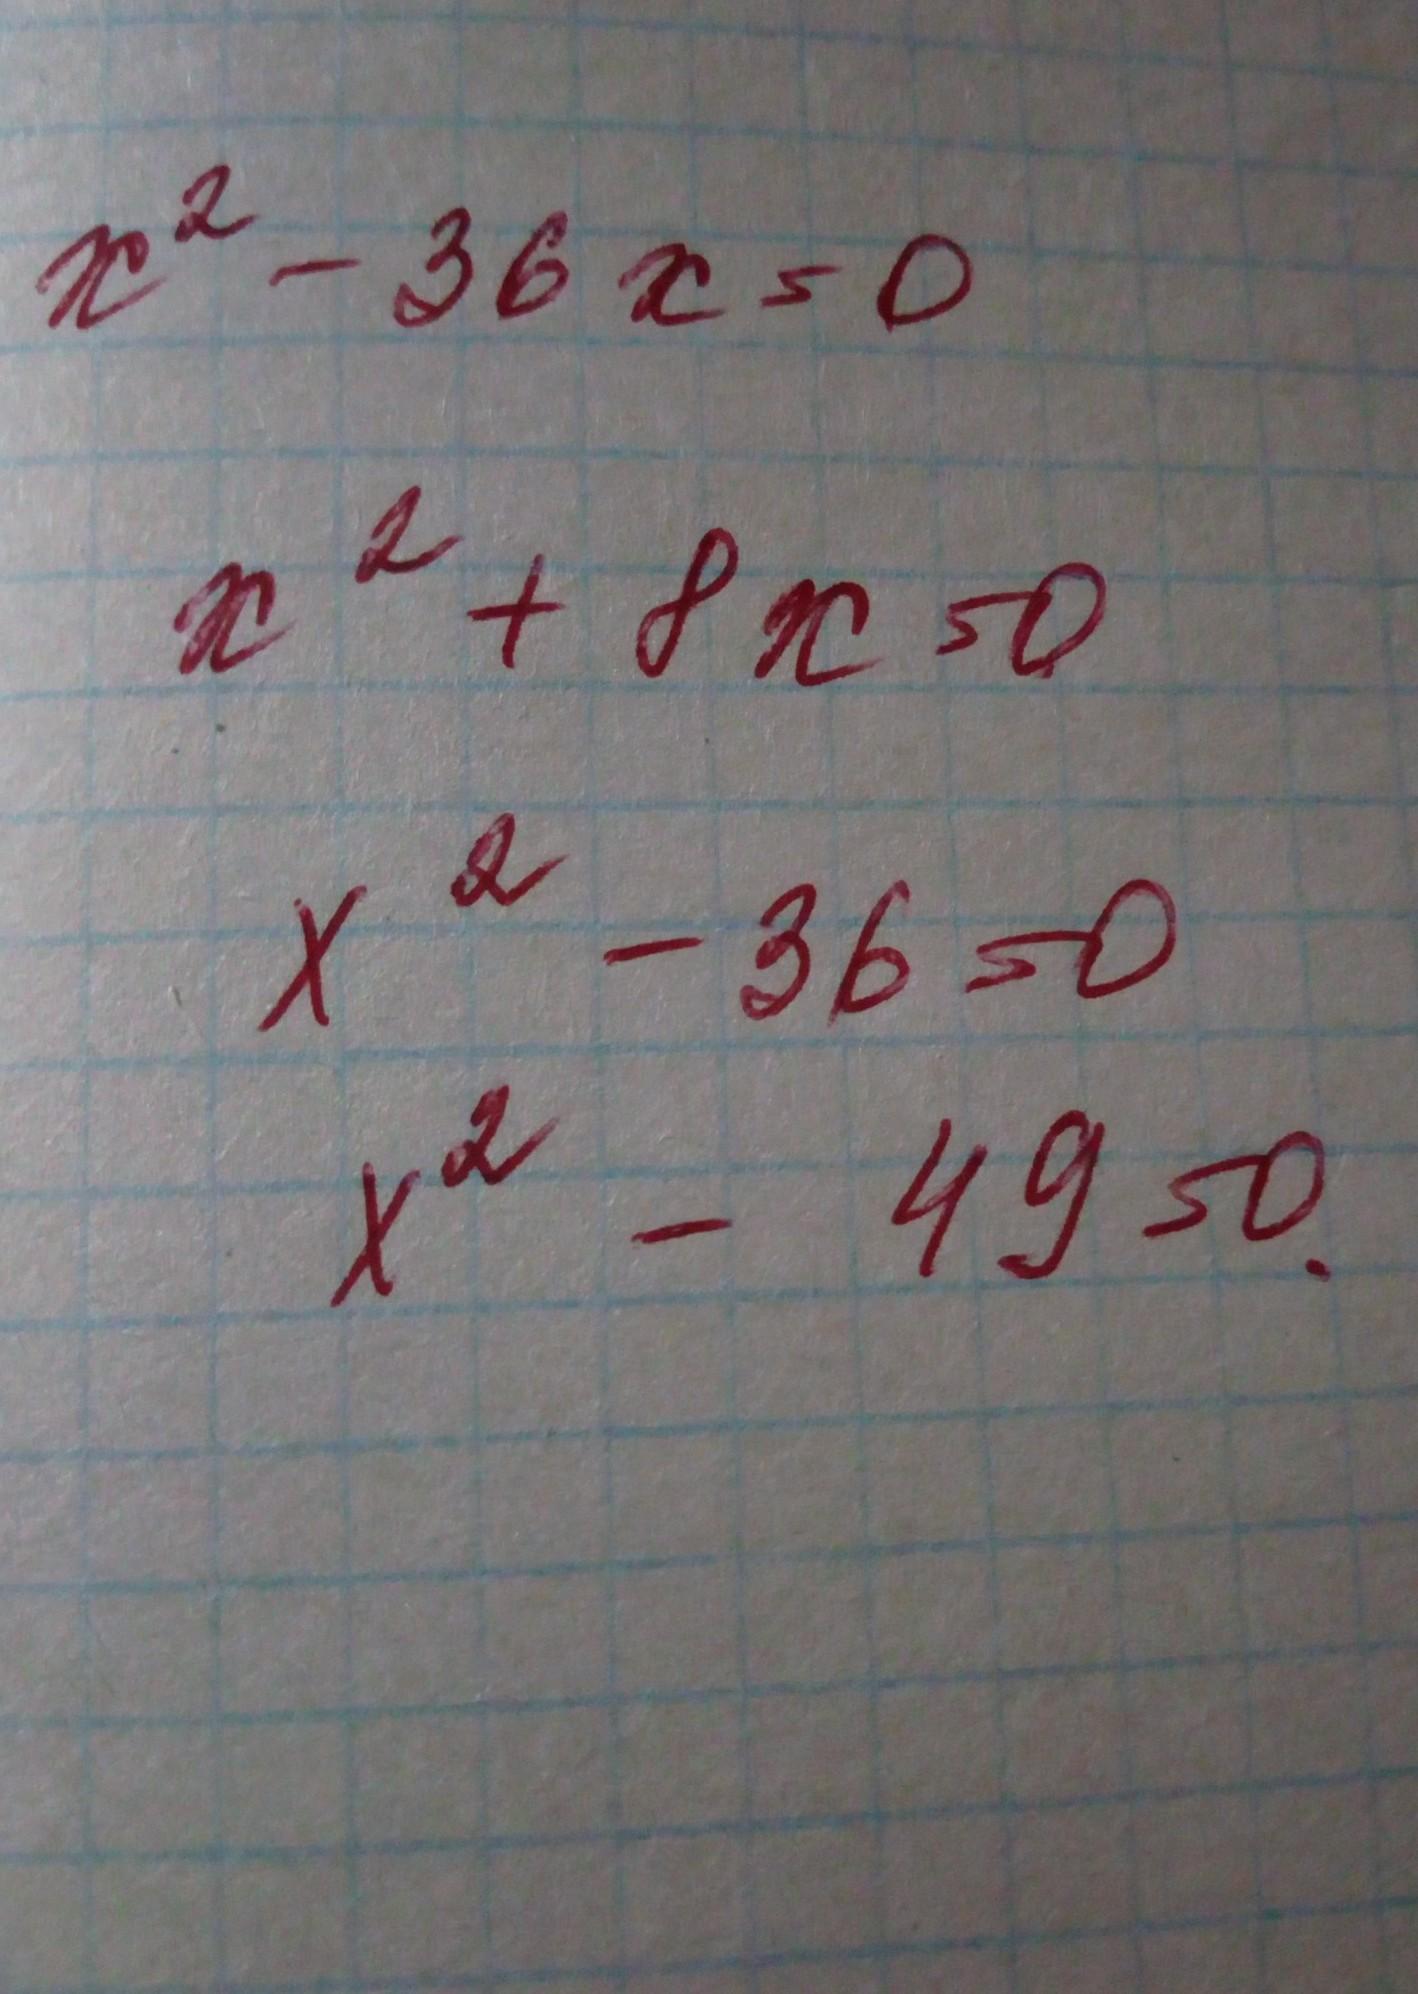 x² - 36x = 0
x² + 8x = 0
x² - 36 = 0
x² - 49 = 0.